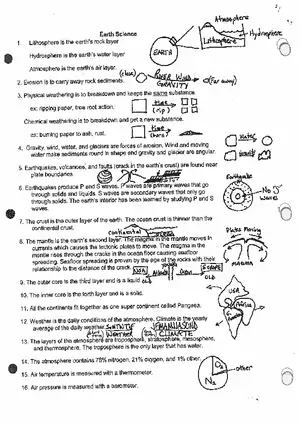 Earth Science
Atmosphere
Hydrosphere
Lithosphere
EARTH
1. Lithosphere is the earth's rock layer
Hydrosphere is the earth's water layer
Atmosphere is the earth's air layer.
(close)
RIVER WIND
GRAVITY
(far away)
2. Erosion is to carry away rock sediments.
3. Physical weathering is to breakdown and keep the same substance.
ex: ripping paper, tree root action.
time
(rip)
Chemical weathering is to breakdown and get a new substance.
as: burning paper to ash, rust.
time
4. Gravity, wind, water, and glaciers are forces of erosion. Wind and moving
water make sediments round in shape and gravity and glacier are angular.
water
gravity
5. Earthquakes, volcanoes, and faults (crack in the earth's crust) are found near
plate boundaries.
Earthquake
No "S"
Waves
6. Earthquakes produce P and S waves. P waves are primary waves that go
through solids and liquids. S waves are secondary waves that only go
through solids. The earth's interior has been learned by studying P and S
waves.
7. The crust is the outer layer of the earth. The ocean crust is thinner than the
continental crust.
continental
Plates Moving
magma
8. The mantle is the earth's second layer. The magma in the mantle moves in
currents which causes the tectonic plates to move. The magma in the
mantle rises through the cracks in the ocean floor causing seafloor
spreading. Seafloor spreading is proven by the age of the rocks with their
relationship to the distance of the crack.
USA
EUROPE
OLD
OLD
9. The outer core is the third layer and is a liquid
10. The inner core is the forth layer and is a solid.
11. All the continents fit together as one super continent called Pangaea.
USA
Africa
12. Weather is the daily conditions of the atmosphere. Climate is the yearly
average of the daily weather.
WEATHER
CLIMATE
13. The layers of the atmosphere are troposphere, stratosphere, mesosphere,
and thermosphere. The troposphere is the only layer that has water.
14. The atmosphere contains 78% nitrogen, 21% oxygen, and 1% other.
O₂
other
N₂
15. Air temperature is measured with a thermometer.
16. Air pressure is measured with a barometer.